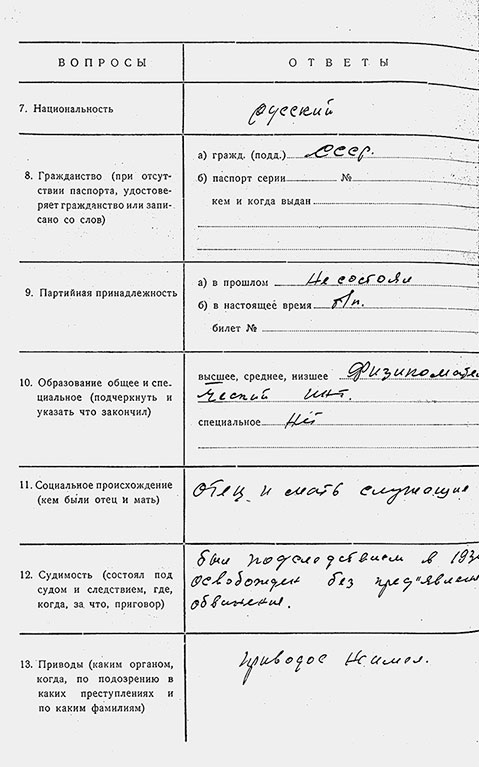 ВОПРОСЫ ОТВЕТЫ
7. Национальность русский
8. Гражданство (при отсут-
ствии паспорта, удостове-
ряет гражданство или запи-
сано со слов)
а) гражд. (подд.) СССР.
б) паспорт серии №
кем и когда выдан
9. Партийная принадлежность
а) в прошлом Не состоял
б) в настоящее время б/п.
билет №
10. Образование общее и спе-
циальное (подчеркнуть и
указать что закончил)
высшее, среднее, низшее Физикомате
ческий инт.
специальное нет
11. Социальное происхождение
(кем были отец и мать)
Отец и мать служащие
12. Судимость (состоял под
судом и следствием, где,
когда, за что, приговор)
был подследствием в 193
освобожден без предъявлен
обвинения.
13. Приводы (каким органом,
когда, по подозрению в
каких преступлениях и
по каким фамилиям)